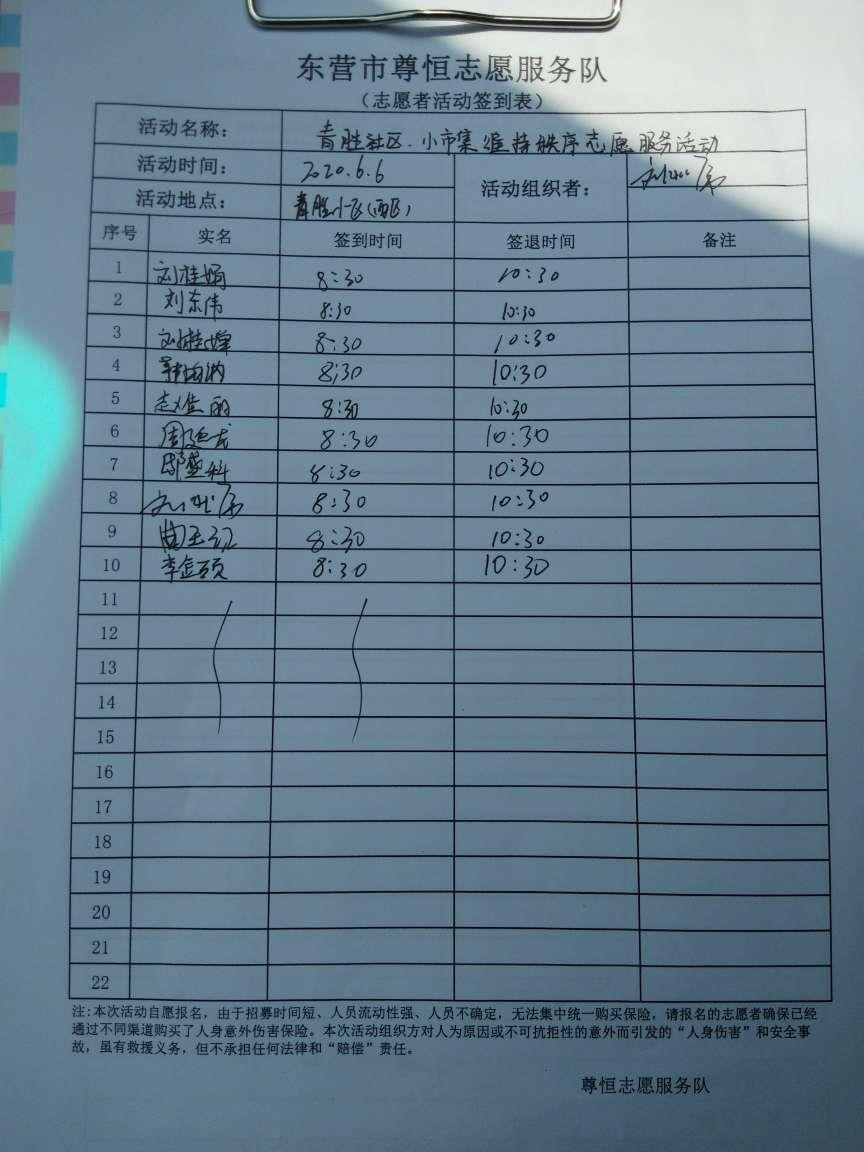 东营市尊恒志愿服务队
（志愿者活动签到表）
活动名称： 青胜社区.小市集维持秩序志愿服务活动
活动时间： 2020.6.6 活动组织者：
活动地点： 青胜小区(西区)
序号 实名 签到时间 签退时间 备注
1 刘桂娟 8:30 10:30
2 刘东伟 8:30 10:30
3 8:30 10:30
4 8:30 10:30
5 8:30 10:30
6 周延龙 8:30 10:30
7 8:30 10:30
8 8:30 10:30
9 8:30 10:30
10 李金硕 8:30 10:30
11
12
13
14
15
16
17
18
19
20
21
22
注:本次活动自愿报名，由于招募时间短、人员流动性强、人员不确定，无法集中统一购买保险，请报名的志愿者确保已经
通过不同渠道购买了人身意外伤害保险。本次活动组织方对人为原因或不可抗拒性的意外而引发的“人身伤害”和安全事
故，虽有救援义务，但不承担任何法律和“赔偿”责任。
尊恒志愿服务队